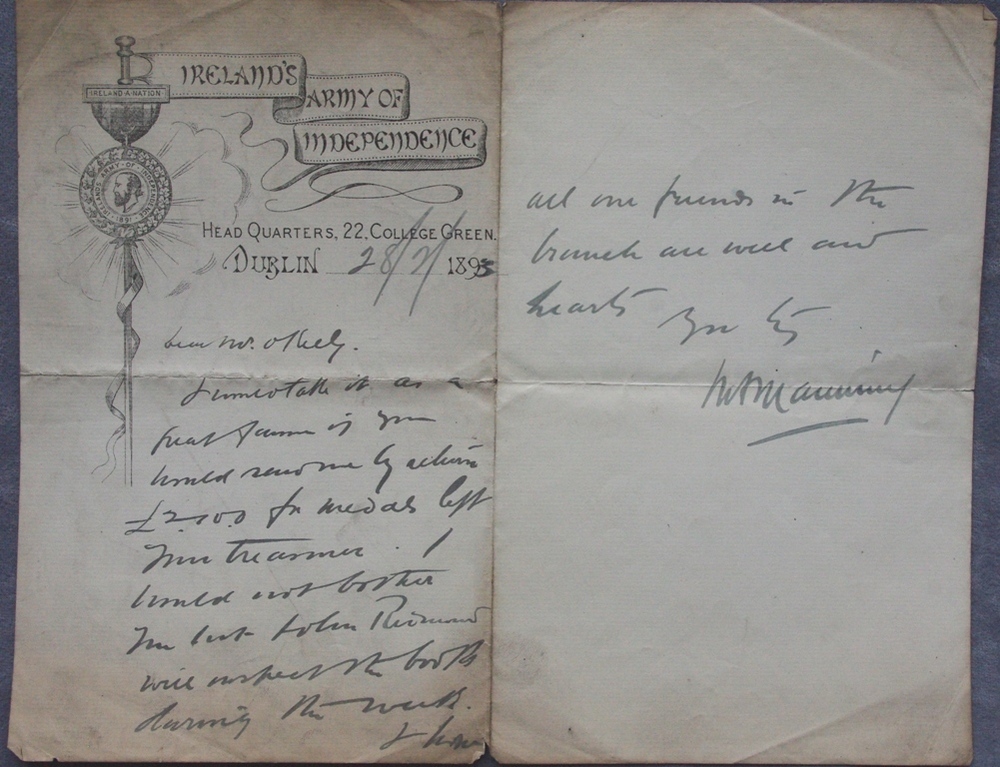 IRELAND'S
ARMY OF
INDEPENDENCE
IRELAND·A·NATION
IRELAND'S·ARMY·OF·INDEPENDENCE
·1891·
HEAD QUARTERS, 22, COLLEGE GREEN.
DUBLIN 28/2/1893
Dear Mr. O'Kelly.
I would take it as a
great favour if you
would send me by return
£2.10.0 for medals left
your treasurer. I
would not bother
you but John Redmond
will inspect the books
during the week.
I hope
all our friends in the
branch are well and
hearty
Yrs try
Manning